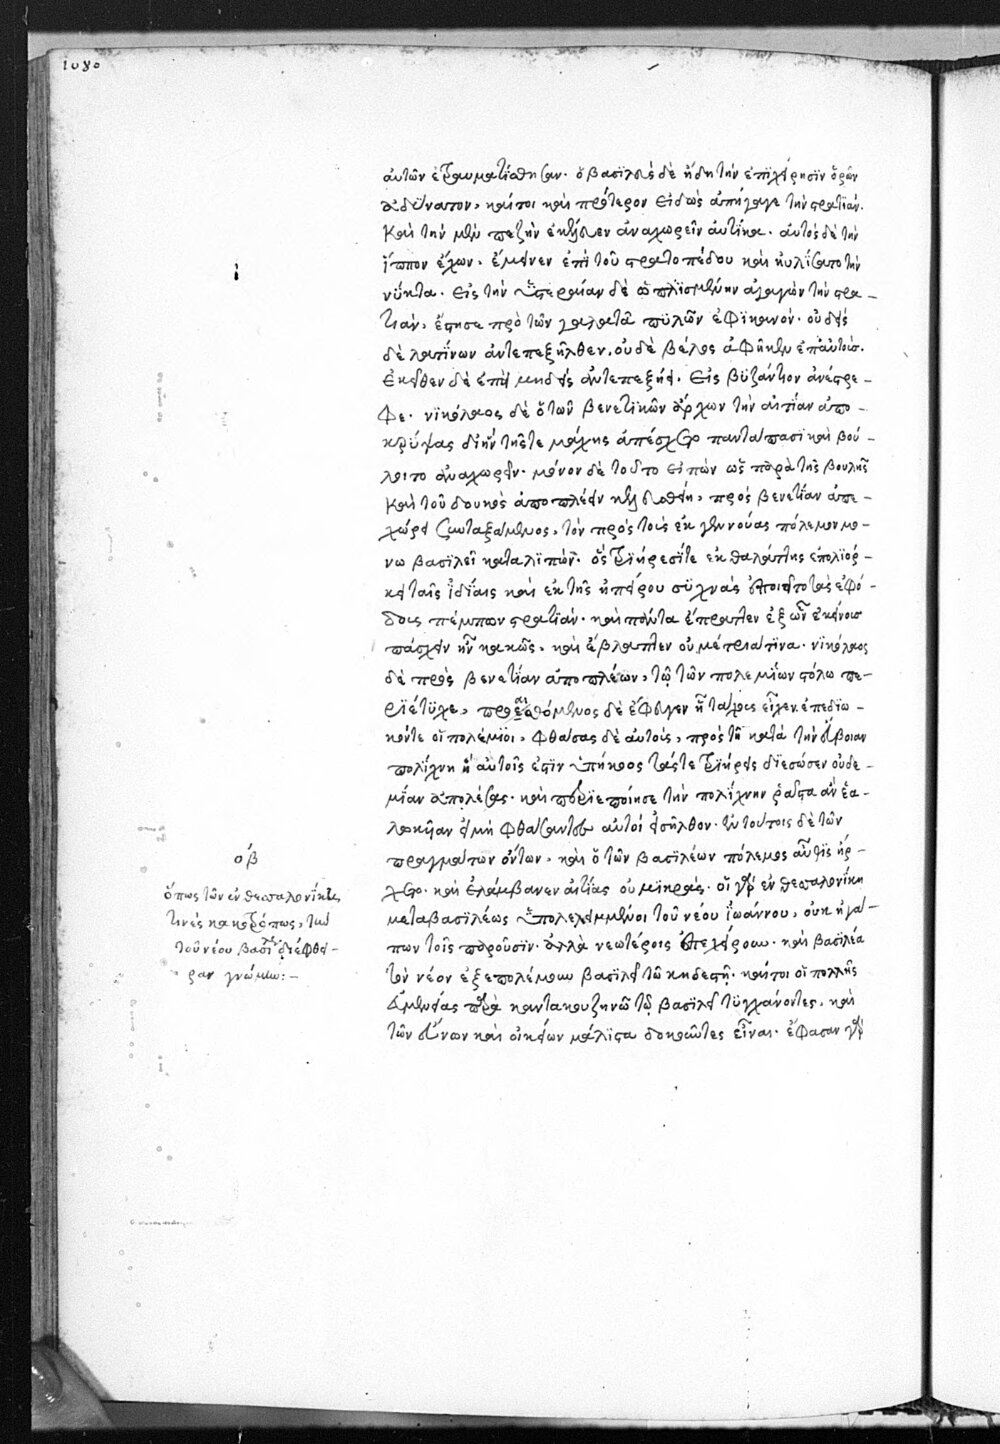 1080
αὐτῶν ἐτραυματίσθησαν. ὁ βασιλεὺς δὲ ἤδη τὴν ἐπιχείρησιν ὁρῶν
ἀδύνατον, καίτοι καὶ πρότερον εἰδὼς ἀπήγαγε τὴν στρατιάν.
καὶ τὴν μὲν πεζὴν ἐκέλευεν ἀναχωρεῖν αὐτίκα. αὐτὸς δὲ τὴν
ἵππον ἔχων, ἔμεινεν ἐπὶ τοῦ στρατοπέδου καὶ ηὐλίσατο τὴν
νύκτα. εἰς τὴν ὑστεραίαν δὲ ὡπλισμένην ἀγαγὼν τὴν στρα-
τιὰν, ἔστησε πρὸ τῶν γαλατᾶ πυλῶν ἐφικανόν. οὐδεὶς
δὲ λατίνων ἀντεπεξῆλθεν, οὐδὲ βέλος ἀφῆκεν ἐπ' αὐτοὺς.
ἐκεῖθεν δὲ ἐπεὶ μηδεὶς ἀντεπεξῄει. εἰς βυζάντιον ἀνέστρε-
φε. νικόλαος δὲ ὁ τῶν βενετικῶν ἄρχων τὴν αἰτίαν ἀπο-
κρύψας δι' ἣν τῆς τε μάχης ἀπέσχετο πανταπασὶ καὶ βού-
λοιτο ἀναχωρεῖν. μόνον δὲ τοῦτο εἰπὼν ὡς παρὰ τῆς βουλῆς
καὶ τοῦ δουκὸς ἀποπλέειν κελευσθείη, πρὸς βενετίαν ἀπε-
χώρει συνταξάμενος, τὸν πρὸς τοὺς ἐκ γεννούας πόλεμον μό-
νῳ βασιλεῖ καταλιπών. ὃς τριήρεσί τε ἐκ θαλάττης ἐπολιόρ-
κει ταῖς ἰδίαις καὶ ἐκ τῆς ἠπείρου συχνὰς ἐποιεῖτο τὰς ἐφό-
δους πέμπων στρατιάν. καὶ πάντα ἔπραττεν ἐξ ὧν ἐκείνους
πάσχειν ἦν κακῶς, καὶ ἔβλαπτεν οὐ μέτρια τινα. νικόλαος
δὲ πρὸς βενετίαν ἀποπλέων, τῷ τῶν πολεμίων στόλῳ πε-
ριέτυχε, δὲ ἔφευγεν ᾗ τάχους εἶχεν. ἐπεδίω-
κόν τε οἱ πολέμιοι, φθάσας δὲ αὐτοὺς, πρὸς τῇ κατὰ τὴν εὔβοιαν
πολίχνῃ ἣ αὐτοῖς ἐστιν ὑπήκοος τάς τε τριήρεις διέσωσεν οὐδε-
μίαν ἀπολέσας. καὶ περιεποίησε τὴν πολίχνην ῥᾷστα ἂν ἑα-
λωκυῖαν εἰ μὴ φθάσαντες αὐτοὶ εἰσῆλθον. ἐν τούτοις δὲ τῶν
πραγμάτων ὄντων, καὶ ὁ τῶν βασιλέων πόλεμος αὖθις ἤρ-
χετο. καὶ ἐλάμβανεν αἰτίας οὐ μικράς. οἱ γὰρ ἐν θεσσαλονίκῃ
μεταβασιλέως ὑπολελειμμένοι τοῦ νέου ἰωάννου, οὐκ ἠγά-
πων τοῖς παροῦσιν. ἀλλὰ νεωτέροις ἐπεχείρουν. καὶ βασιλέα
τὸν νέον ἐξεπολέμουν βασιλεῖ τῷ κηδεστῇ. καίτοι οἱ πολλῆς
εὐμενείας παρὰ καντακουζηνῷ τῷ βασιλεῖ τυγχάνοντες, καὶ
τῶν εὔνων καὶ οἰκείων μάλιστα δοκοῦντες εἶναι. ἔφασαν γὰρ
οβ
ὅπως τῶν ἐν θεσσαλονίκῃ
τινὲς κακοτρόπως, τὴν
τοῦ νέου βασιλέως διέφθει-
ραν γνώμην:-